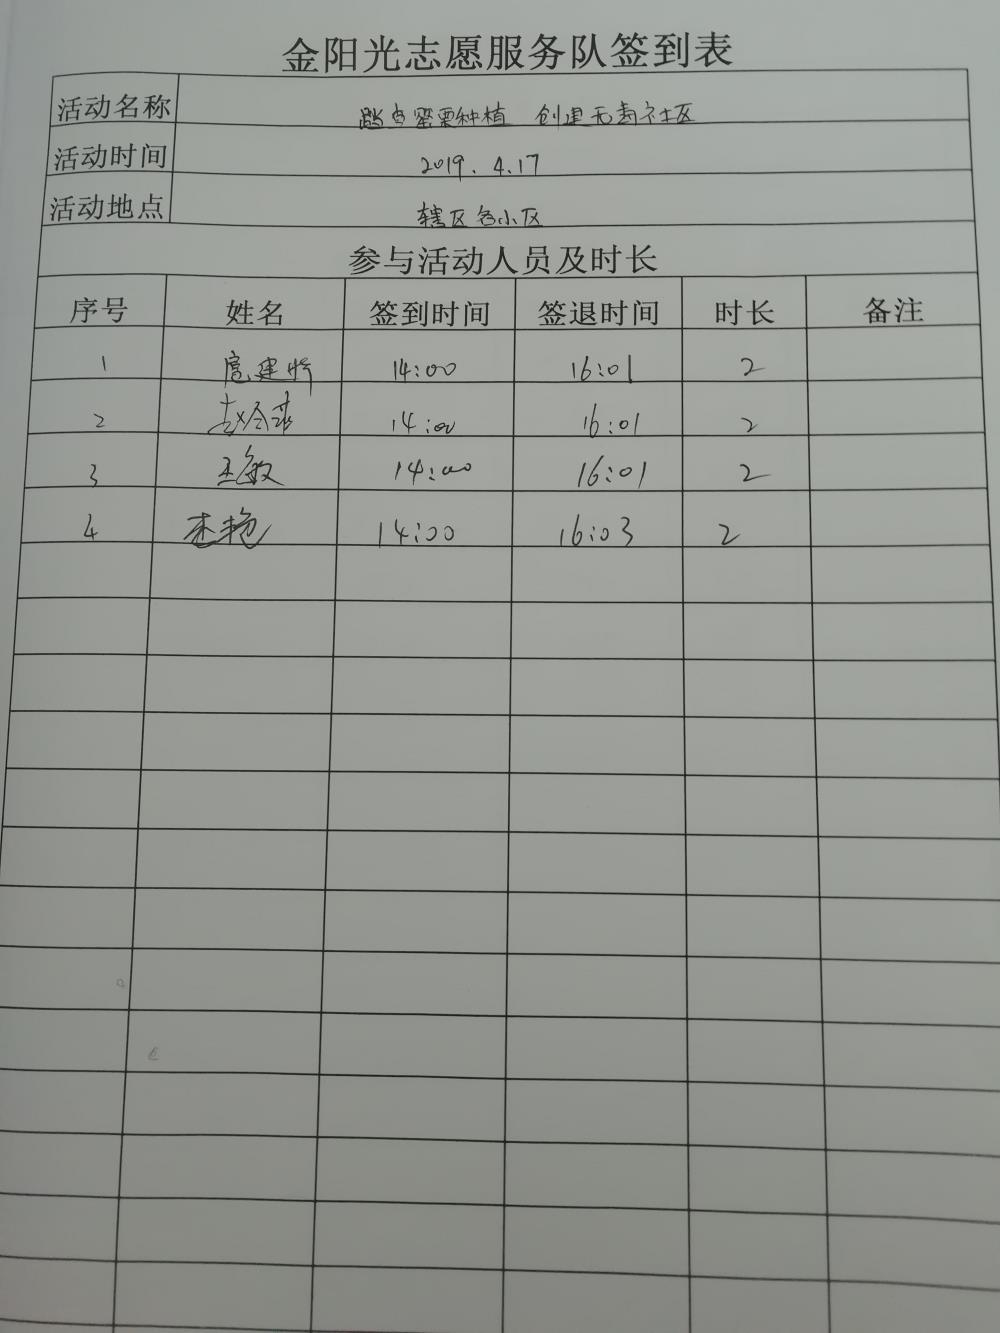 金阳光志愿服务队签到表
活动名称 踏查罂粟种植 创建无毒社区
活动时间 2019.4.17
活动地点 辖区各小区
参与活动人员及时长
序号 姓名 签到时间 签退时间 时长 备注
1 14:00 16:01 2
2 14:00 16:01 2
3 王敏 14:00 16:01 2
4 李艳 14:00 16:03 2